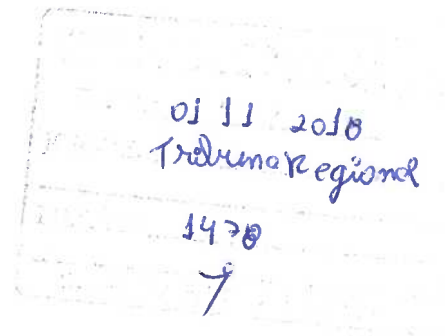 01 11 2018
Tribuna Regional
1478
7